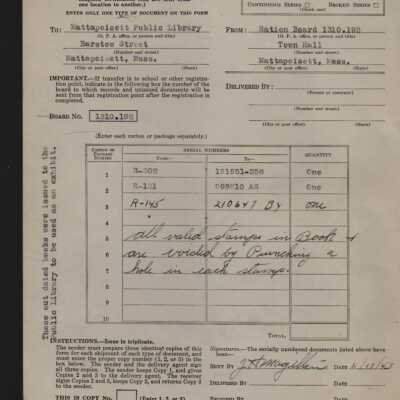 one location to another.)
CONTINUOUS SERIES BROKEN SERIES
ENTER ONLY ONE TYPE OF DOCUMENT ON THIS FORM
TO: Mattapoisett Public Library
(O. P. A. office, or person and title)
Barstow Street
(Number) (Street)
Mattapoisett, Mass.
(City or post office) (State)
FROM: Ration Board 1310.192
(O. P. A. office, or person and title)
Town Hall
(Number) (Street)
Mattapoisett, Mass.
(City or post office) (State)
IMPORTANT.—If transfer is to school or other registration point, indicate in the following box the number of the board to which records and unissued documents will be sent from that registration point after the registration is completed.
DELIVERED BY:
(Person or company)
(Number) (Street)
(City or post office) (State)
BOARD NO. 1310.192
(Enter each carton or package separately.)
SERIAL NUMBERS
QUANTITY
From— To—
1 One
2 R-121 One
3 R-145 210647 one
4
5 all valid stamps in Book
6 are voided by Punching a
7 hole in each stamp.
8
9
10
TOTAL
These out dated books were issued to the
Public Library to be used as an exhibit.
INSTRUCTIONS.—Issue in triplicate.
The sender must prepare three identical copies of this form for each shipment of each type of document, and must enter the proper copy number (1, 2, or 3) in the box below. The sender and the delivery agent sign all three copies. The sender keeps Copy 1, and gives Copies 2 and 3 to the delivery agent. The receiver signs Copies 2 and 3, keeps Copy 2, and returns Copy 3 to the sender.
Signatures.—The serially numbered documents listed above have been—
SENT BY DATE
DELIVERED BY DATE
THIS IS COPY NO. (Enter 1, 2, or 3)